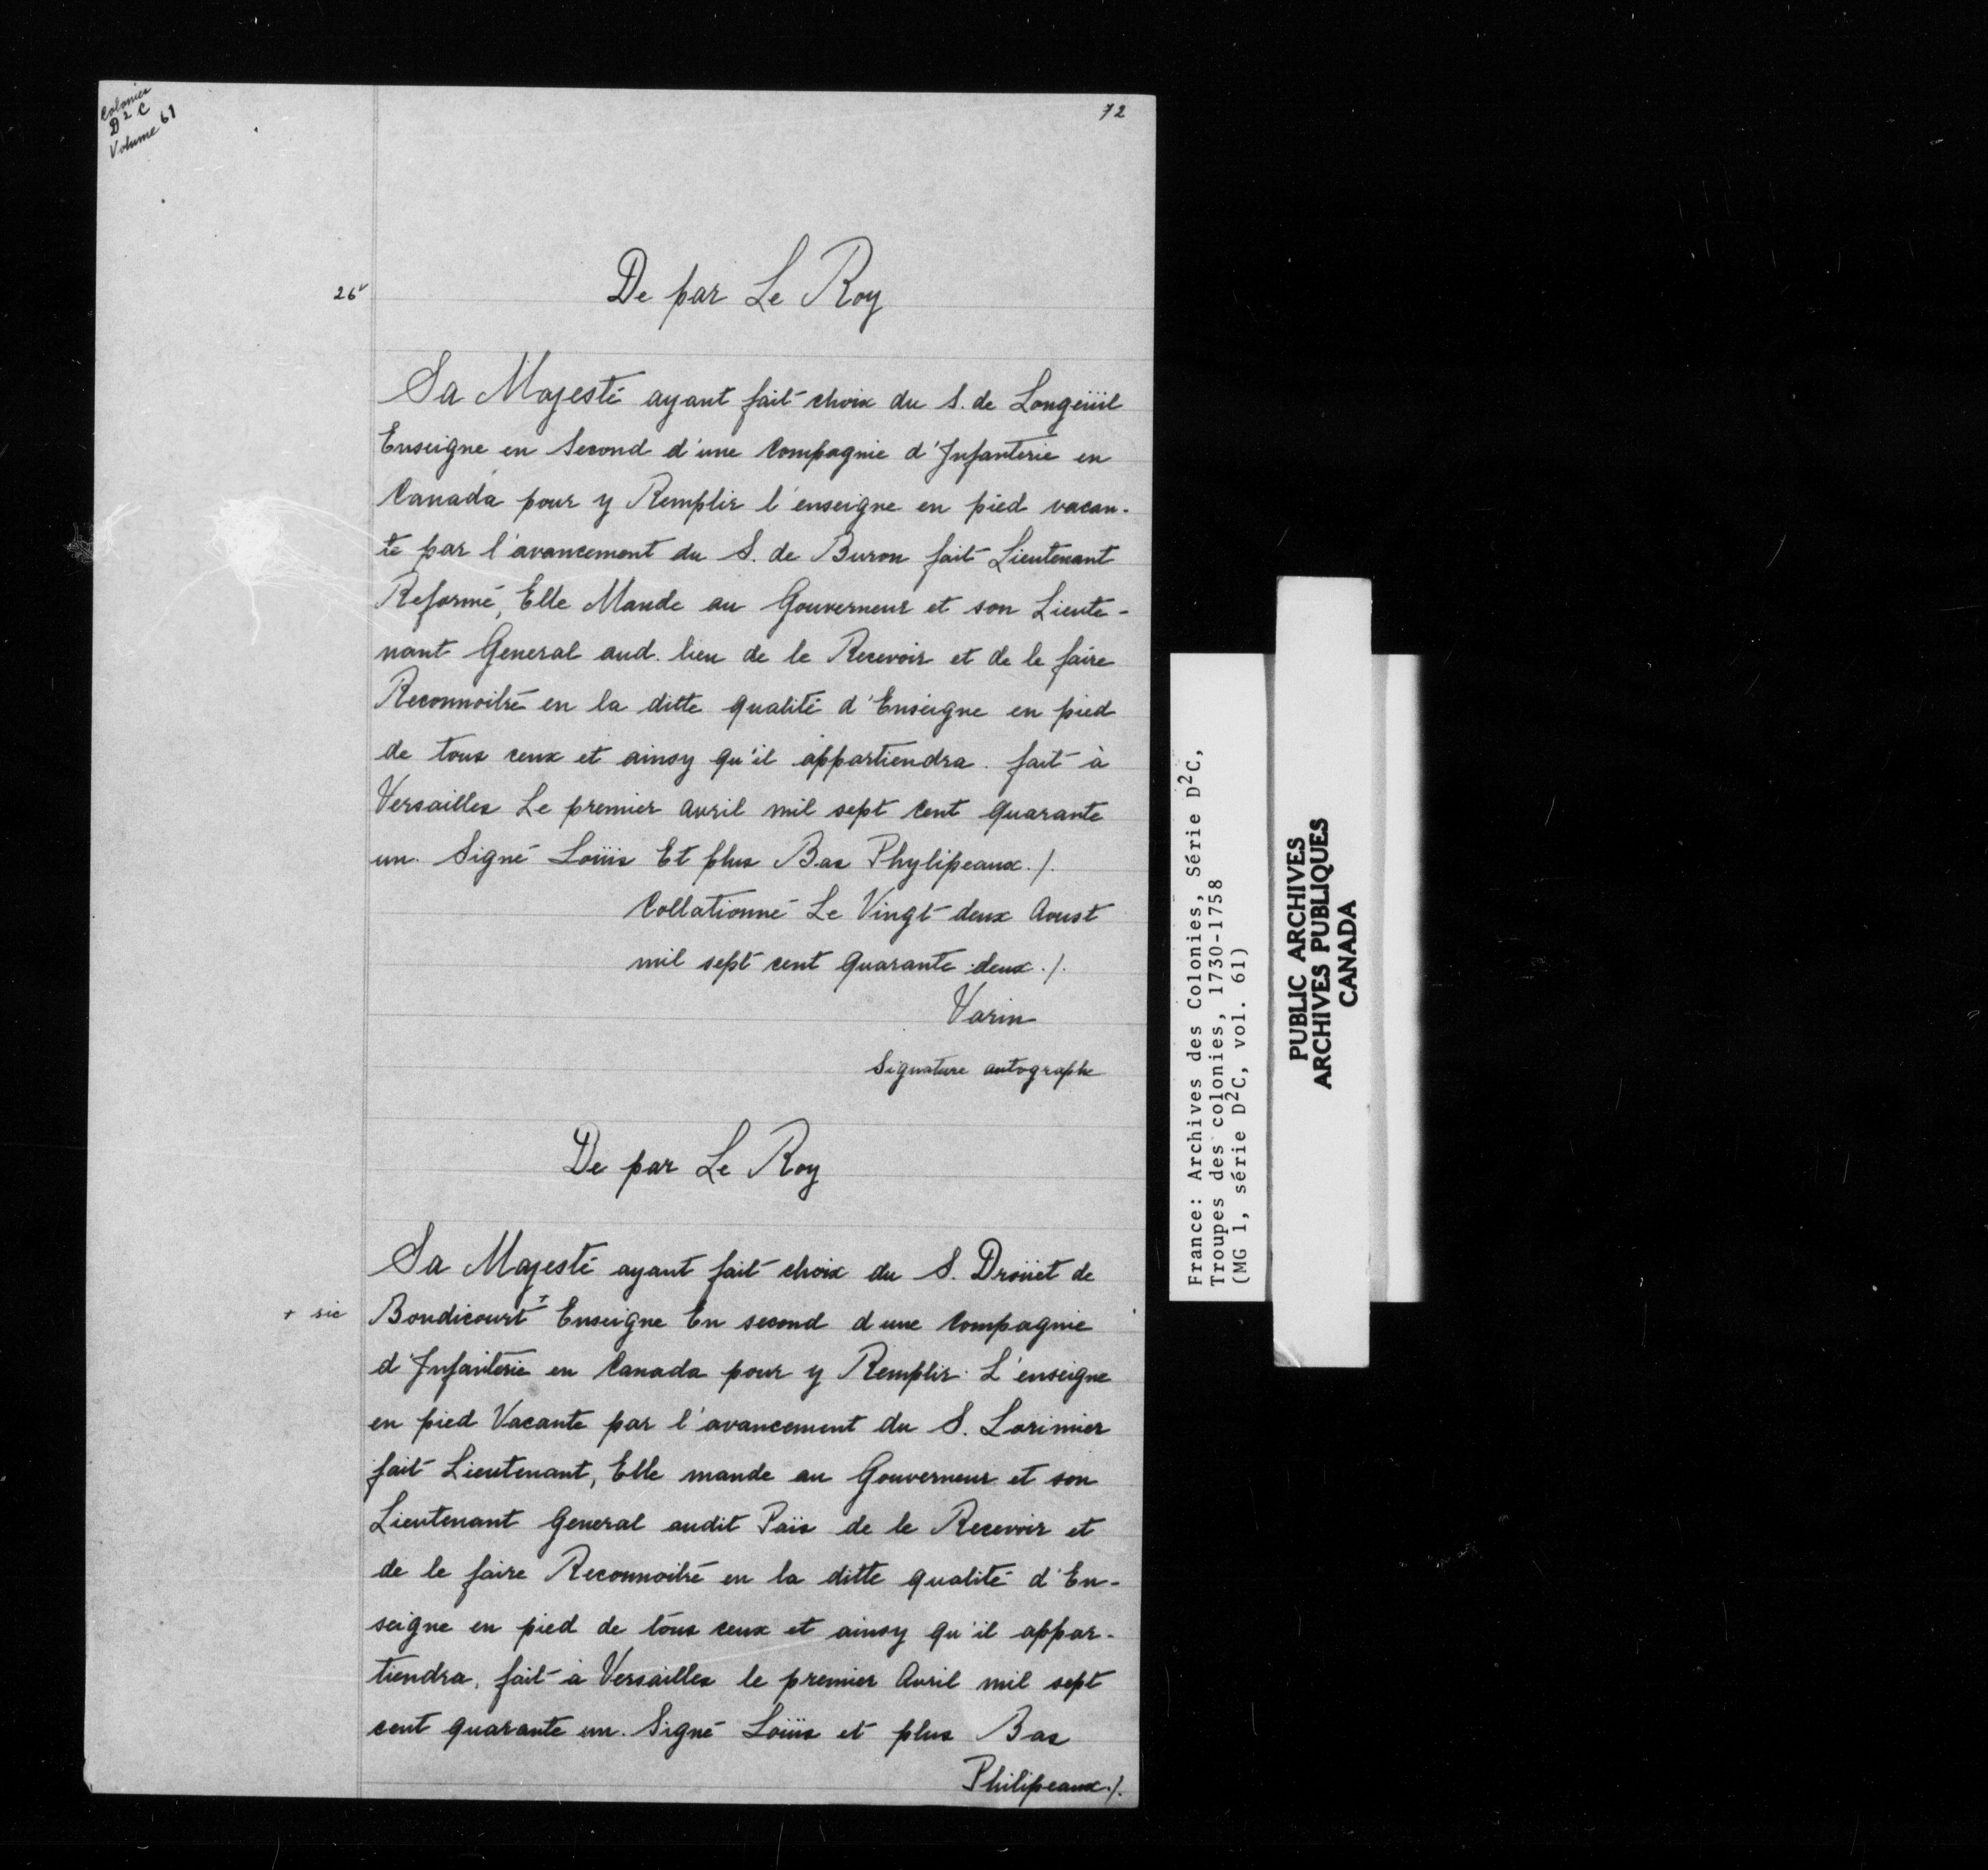 Colonies
D2C
Volume 61
72
26v
De par Le Roy
Sa Majesté ayant fait choix du S. de Longeüil
Enseigne en Second d'une Compagnie d'Infanterie en
Canada pour y Remplir l'enseigne en pied vacan-
te par l'avancement du S. de Buron fait Lieutenant
Reformé, Elle Mande au Gouverneur et son Lieute-
nant General aud. lieu de le Recevoir et de le faire
Reconnoitre en la ditte qualité d'Enseigne en pied
de tous ceux et ainsy qu'il appartiendra. fait à
Versailles Le premier avril mil sept Cent quarante
un. Signé Loüis Et plus Bas Phylipeaux./.
Collationné Le Vingt deux Aoust
mil sept cent quarante deux./.
Varin
Signature autographe
De par Le Roy
Sa Majesté ayant fait choix du S. Droüet de
+ sic Boudicourt + Enseigne En second d'une Compagnie
d'Infanterie en Canada pour y Remplir L'enseigne
en pied Vacante par l'avancement du S. Lorimier
fait Lieutenant, Elle mande au Gouverneur et son
Lieutenant General audit Païs de le Recevoir et
de le faire Reconnoitre en la ditte qualité d'En-
seigne en pied de tous ceux et ainsy qu'il appar-
tiendra, fait à Versailles le premier Avril mil sept
cent quarante un. Signé Loüis et plus Bas
Philipeaux./.
France: Archives des Colonies, Série D2C,
Troupes des colonies, 1730-1758
(MG 1, série D2C, vol. 61)
PUBLIC ARCHIVES
ARCHIVES PUBLIQUES
CANADA